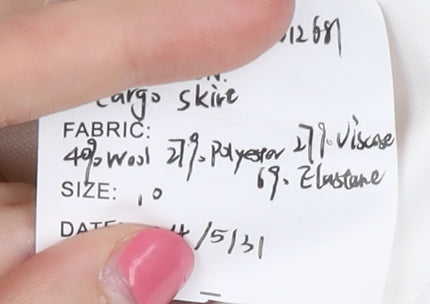 12681
N:
Cargo Skire
FABRIC:
40% Wool 27%. Polyester 27%. Viscose
6%. Elastane
SIZE: 10
DATE 4/5/31